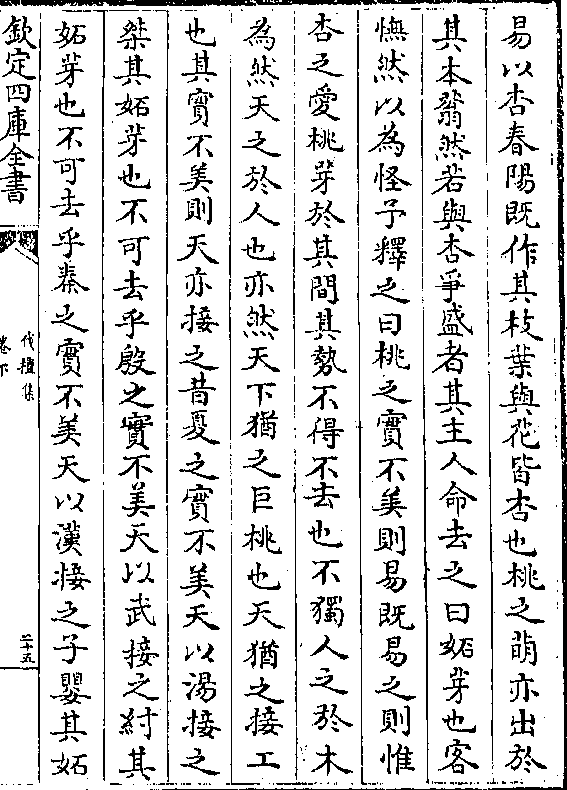 易以杏春陽既作其枝葉與花皆杏也桃之萌亦出於
其本蓊然若與杏爭盛者其主人命去之曰妬芽也客
憮然以為怪予釋之曰桃之實不美則易既易之則惟
杏之愛桃芽於其間其勢不得不去也不獨人之於木
為然天之於人也亦然天下猶之巨桃也天猶之接工
也其實不美則天亦接之昔夏之實不美天以湯接之
桀其妬芽也不可去乎殷之實不美天以武接之紂其
妬芽也不可去乎秦之實不美天以漢接之子嬰其妬
欽定四庫全書
伐檀集
卷下
二十五